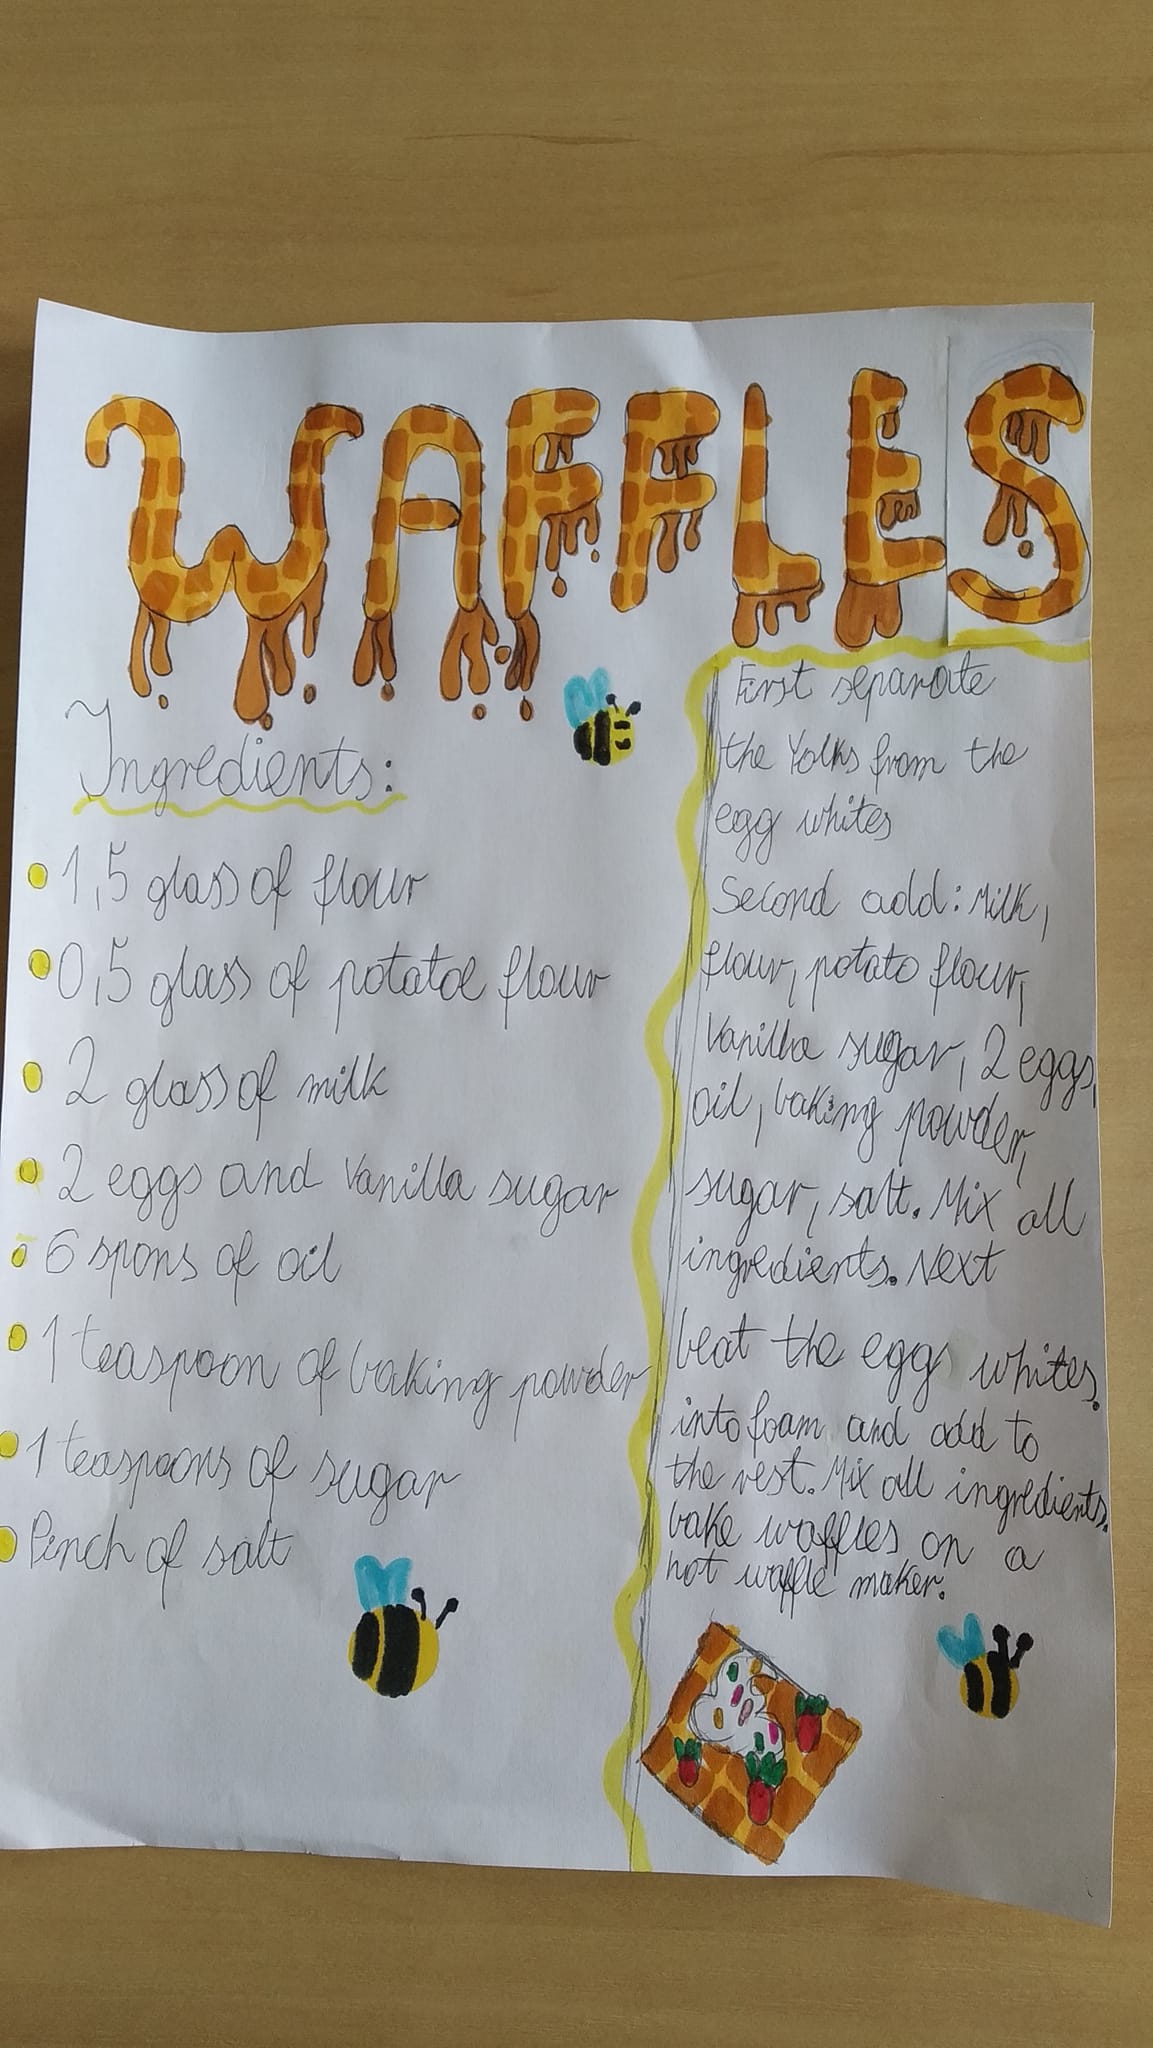 WAFFLES
Ingredients:
1,5 glass of flour
0,5 glass of potatoe flour
2 glass of milk
2 eggs and vanilla sugar
6 spons of oil
1 teaspoon of baking powder
1 teaspoons of sugar
Pinch of salt
First separate
the Yolks from the
egg whites
Second add: Milk,
flour, potato flour,
Vanilla sugar, 2 eggs,
oil, baking powder,
sugar, salt. Mix all
ingredients. Next
beat the eggs whites.
into foam and add to
the rest. Mix all ingredients.
bake waffles on a
hot waffle maker.